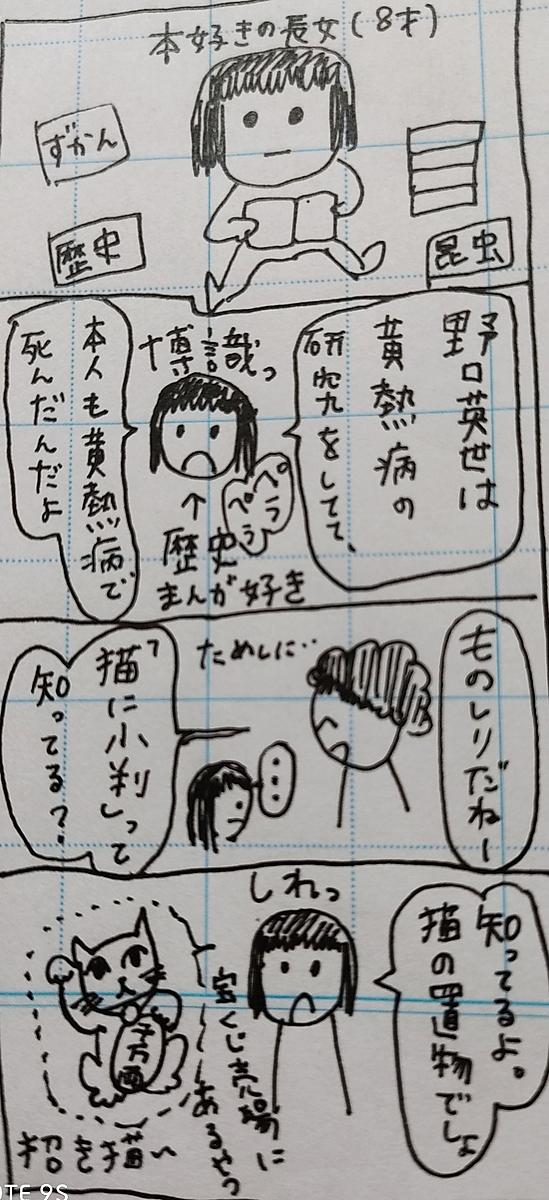 本好きの長女(8才)
ずかん
歴史
昆虫
野口英世は
黄熱病の
研究をしてて、
博識っ
ペラ
ペラ
↑
歴史
まんが好き
本人も黄熱病で
死んだんだよ
ものしりだねー
ためしに‥
…
「猫に小判」って
知ってる?
知ってるよ。
猫の置物でしょ
しれっ
宝くじ売場に
あるやつ
千万両
招き猫〜
OTE 9S